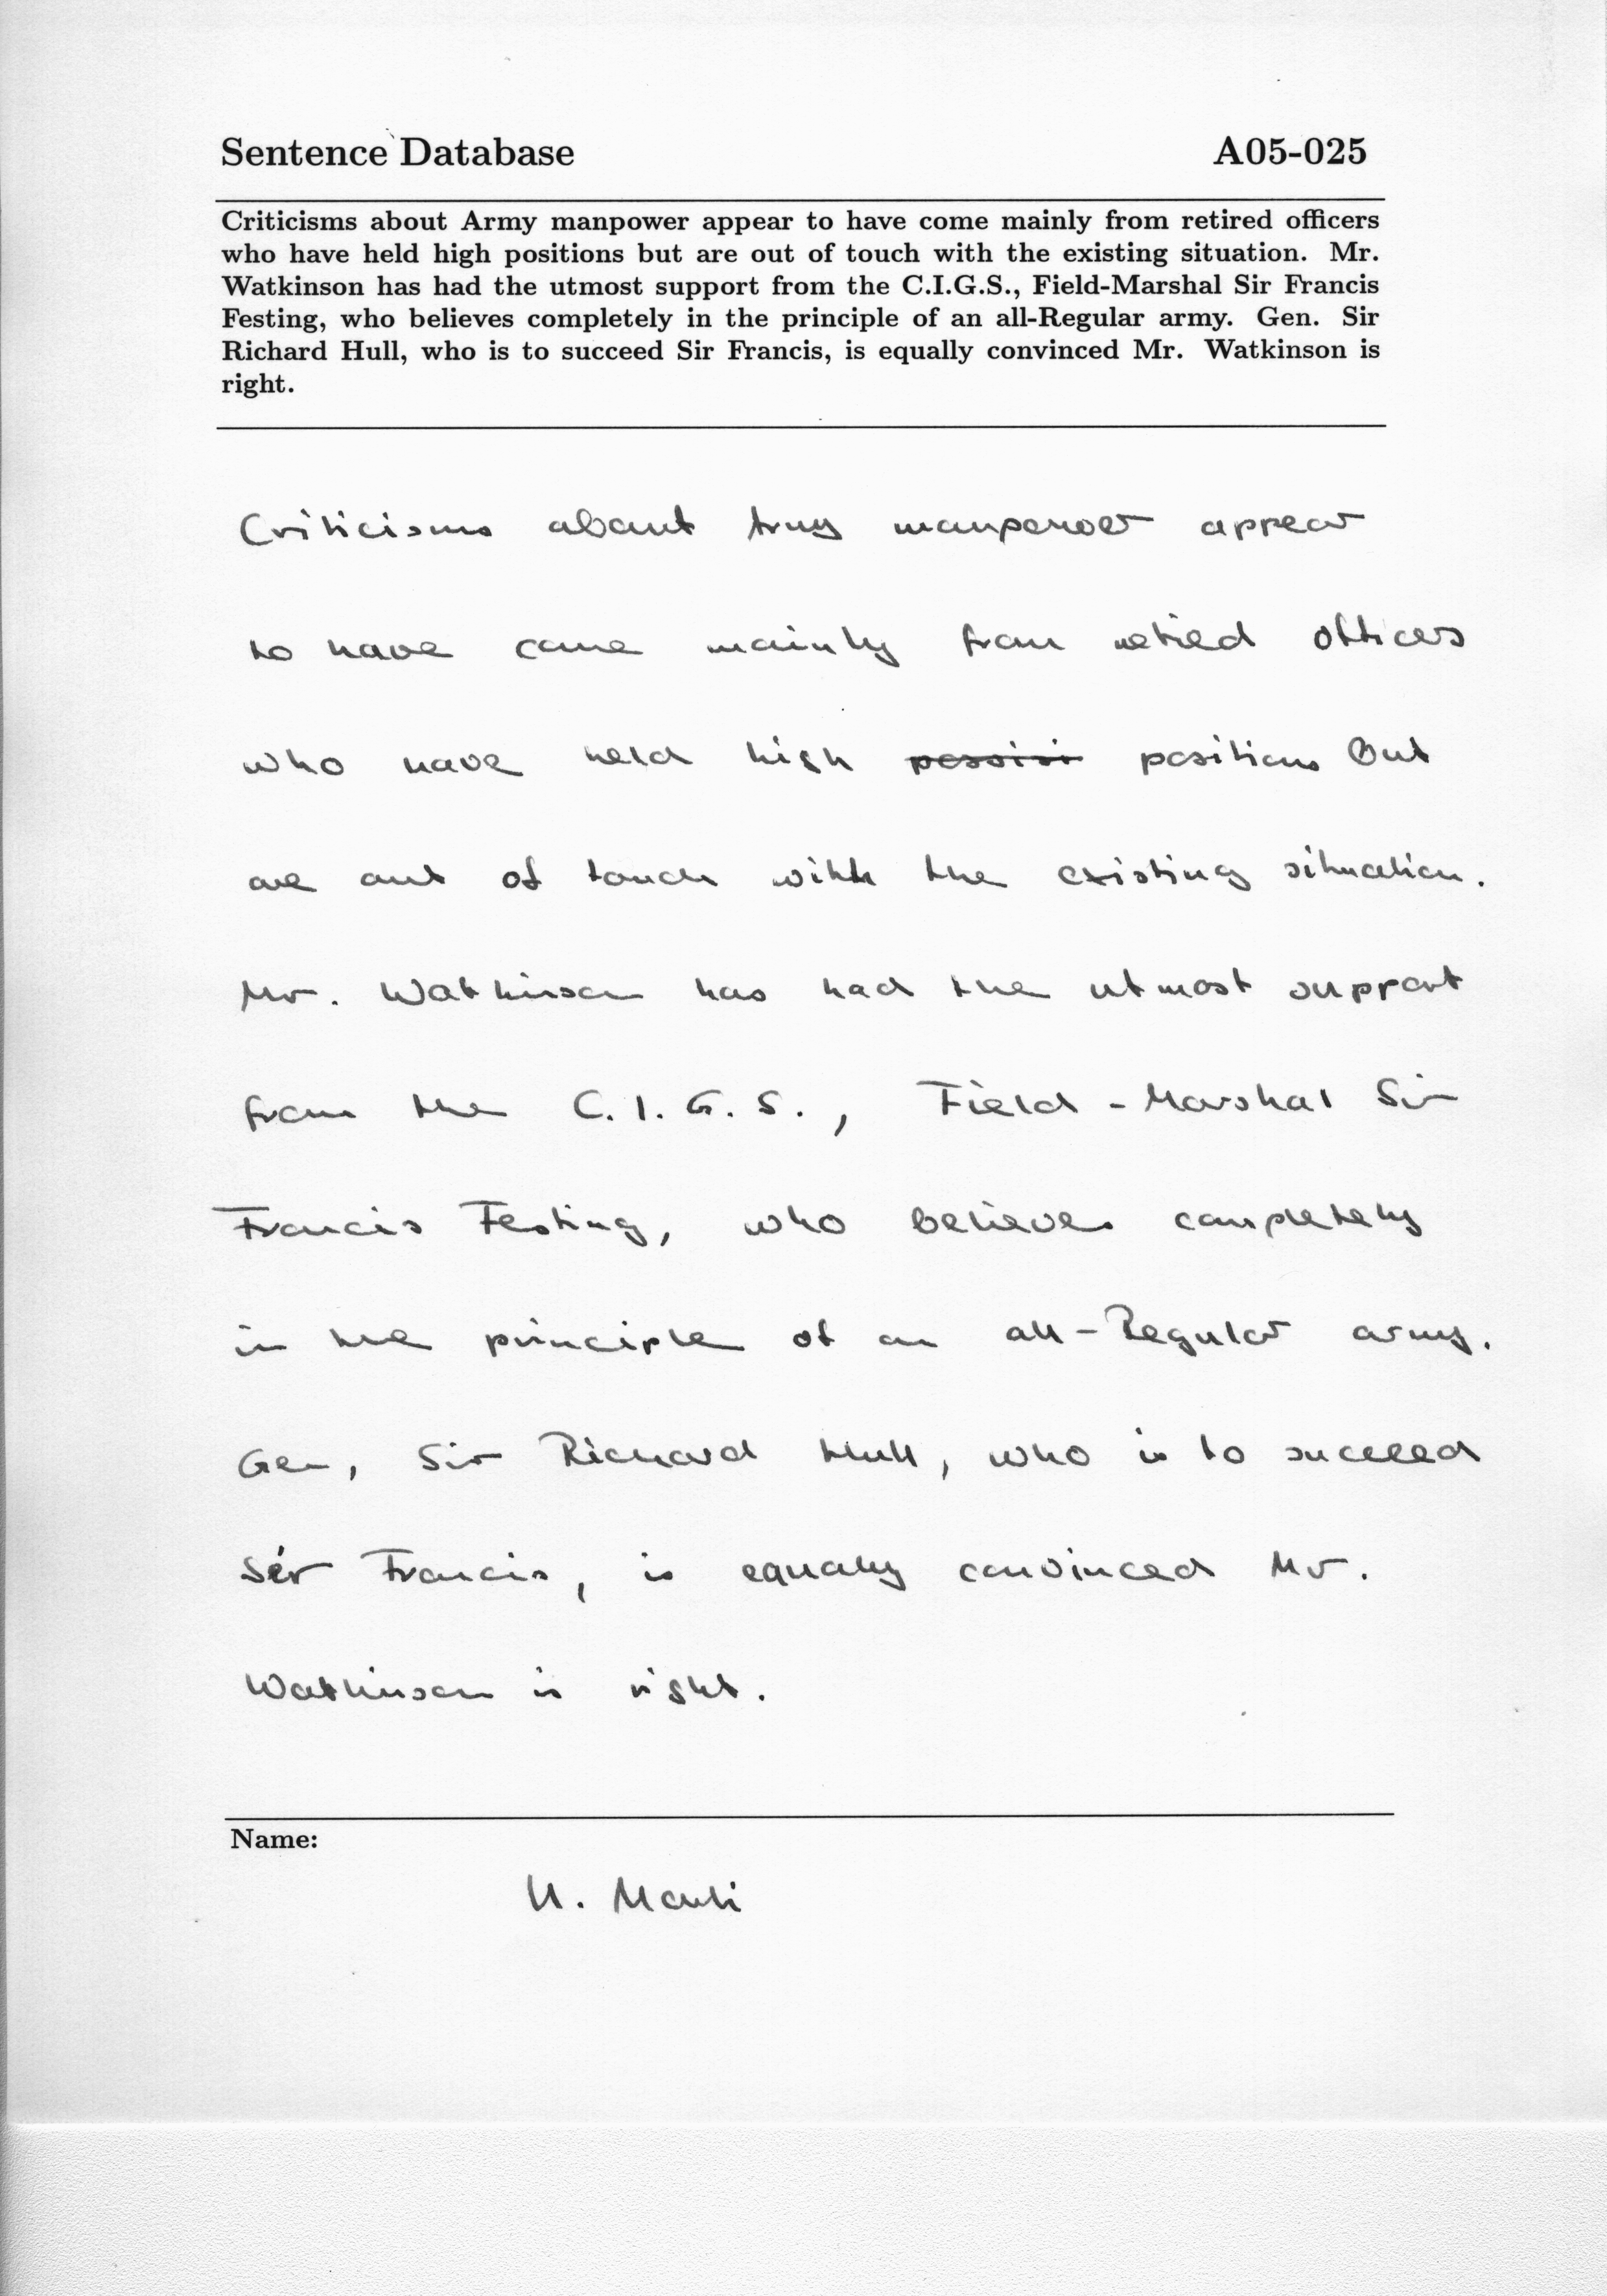 Sentence Database A05-025
Criticisms about Army manpower appear to have come mainly from retired officers
who have held high positions but are out of touch with the existing situation. Mr.
Watkinson has had the utmost support from the C.I.G.S., Field-Marshal Sir Francis
Festing, who believes completely in the principle of an all-Regular army. Gen. Sir
Richard Hull, who is to succeed Sir Francis, is equally convinced Mr. Watkinson is
right.
Criticisms about Army manpower appear
to have come mainly from retired officers
who have held high positions but
are out of touch with the existing situation.
Mr. Watkinson has had the utmost support
from the C.I.G.S., Field-Marshal Sir
Francis Festing, who believes completely
in the principle of an all-Regular army.
Gen, Sir Richard Hull, who is to succeed
Sir Francis, is equally convinced Mr.
Watkinson is right.
Name: